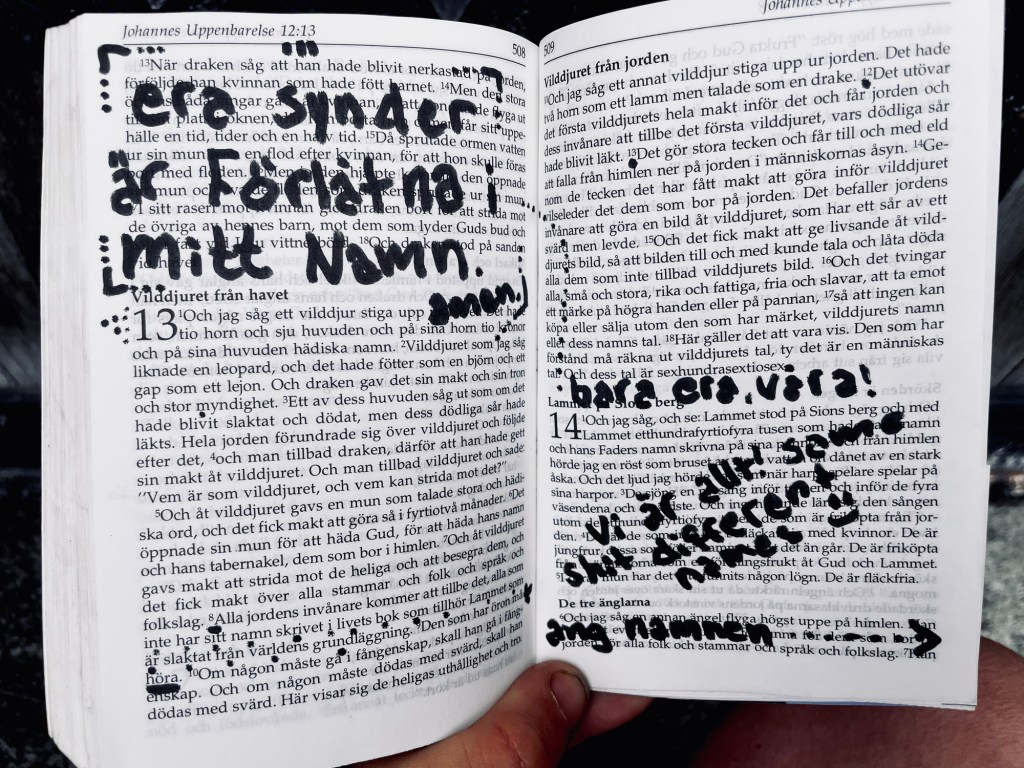 Johannes Uppenbarelse 12:13
508
¹³När draken såg att han hade blivit nerkastad på jorden,
förföljde han kvinnan som hade fött barnet. ¹⁴Men den stora
era synder
hälle en tid, tider och en halv tid. ¹⁵Då sprutade ormen vatten
ur sin mun som en flod efter kvinnan, för att hon skulle föras
bort med floden.
är Förlåtna i
de övriga av hennes barn, mot dem som lyder Guds bud och
mitt Namn.
amen.
Vilddjuret från havet
13 ¹Och jag såg ett vilddjur stiga upp
tio horn och sju huvuden och på sina horn tio kronor
och på sina huvuden hädiska namn. ²Vilddjuret som jag såg
liknade en leopard, och det hade fötter som en björn och ett
gap som ett lejon. Och draken gav det sin makt och sin tron
och stor myndighet. ³Ett av dess huvuden såg ut som om det
hade blivit slaktat och dödat, men dess dödliga sår hade
läkts. Hela jorden förundrade sig över vilddjuret och följde
efter det, ⁴och man tillbad draken, därför att han hade gett
sin makt åt vilddjuret. Och man tillbad vilddjuret och sade:
"Vem är som vilddjuret, och vem kan strida mot det?"
⁵Och åt vilddjuret gavs en mun som talade stora och hädi-
ska ord, och det fick makt att göra så i fyrtiotvå månader. ⁶Det
öppnade sin mun för att häda Gud, för att häda hans namn
och hans tabernakel, dem som bor i himlen. ⁷Och åt vilddjuret
gavs makt att strida mot de heliga och att besegra dem, och
det fick makt över alla stammar och folk och språk och
folkslag. ⁸Alla jordens invånare kommer att tillbe det, alla som
inte har sitt namn skrivet i livets bok som tillhör Lammet som
är slaktat från världens grundläggning. ⁹Den som har öron må
höra. ¹⁰Om någon måste gå i fångenskap, skall han gå i fång-
enskap. Och om någon måste dödas med svärd, skall han
dödas med svärd. Här visar sig de heligas uthållighet och tro.
509
Vilddjuret från jorden
¹¹Och jag såg ett annat vilddjur stiga upp ur jorden. Det hade
två horn som ett lamm men talade som en drake. ¹²Det utövar
det första vilddjurets hela makt inför det och får jorden och
dess invånare att tillbe det första vilddjuret, vars dödliga sår
hade blivit läkt. ¹³Det gör stora tecken och får till och med eld
att falla från himlen ner på jorden i människornas åsyn. ¹⁴Ge-
nom de tecken det har fått makt att göra inför vilddjuret
vilseleder det dem som bor på jorden. Det befaller jordens
invånare att göra en bild åt vilddjuret, som har ett sår av ett
svärd men levde. ¹⁵Och det fick makt att ge livsande åt vild-
djurets bild, så att bilden till och med kunde tala och låta döda
alla dem som inte tillbad vilddjurets bild. ¹⁶Och det tvingar
alla, små och stora, rika och fattiga, fria och slavar, att ta emot
ett märke på högra handen eller på pannan, ¹⁷så att ingen kan
köpa eller sälja utom den som har märket, vilddjurets namn
eller dess namns tal. ¹⁸Här gäller det att vara vis. Den som har
förstånd må räkna ut vilddjurets tal, ty det är en människas
tal. Och dess tal är sexhundrasextiosex.
bara era, våra!
Lammet på Sions berg
14 ¹Och jag såg, och se: Lammet stod på Sions berg och med
Lammet etthundrafyrtiofyra tusen som
och hans Faders namn skrivna på sina
hörde jag en röst från himlen
åska. Och det ljud jag hörde
sina harpor.
vi är allt! same
shit different
namet
De tre änglarna
⁶Och jag såg en annan ängel flyga högst uppe på himlen. Han
ang namnen
jorden, för alla folk och stammar och språk och folkslag. ⁷Han